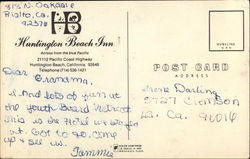 815 N. Oakdale
Rialto, Ca.
92376
HB
Huntington Beach Inn
Across from the blue Pacific
21112 Pacific Coast Highway
Huntington Beach, California 92648
Telephone (714) 536-1421
POST CARD
ADDRESS
Dear Grandma,
I had lots of fun at
the Youth Board Retreat
This is the Hotel we stayed
at. Got to go. Come
up & see us.
Tammie
Irene Darling
5727 Clemson
La. Ca. 90016